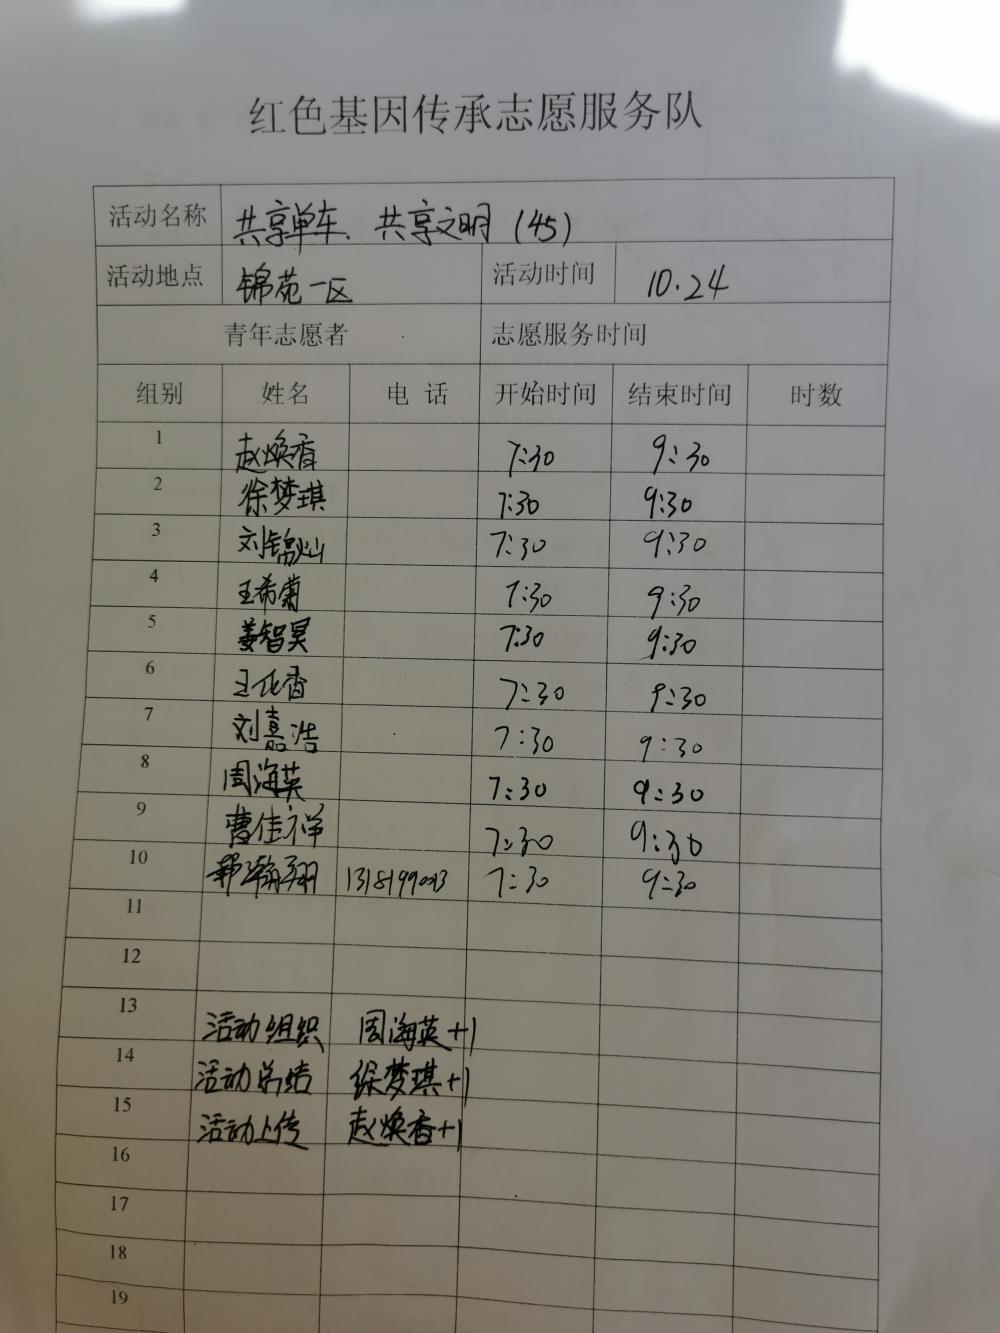 红色基因传承志愿服务队
活动名称 共享单车、共享文明(45)
活动地点 锦苑一区 活动时间 10.24
青年志愿者 志愿服务时间
组别 姓名 电话 开始时间 结束时间 时数
1 赵焕香 7:30 9:30
2 徐梦琪 7:30 9:30
3 刘锦灿 7:30 9:30
4 王希菊 7:30 9:30
5 姜智昊 7:30 9:30
6 王化香 7:30 9:30
7 刘嘉浩 7:30 9:30
8 周海英 7:30 9:30
9 曹佳祥 7:30 9:30
10 瀚翔 7:30 9:30
11
12
13 活动组织 周海英+1
14 活动总结 徐梦琪+1
15 活动上传 赵焕香+1
16
17
18
19